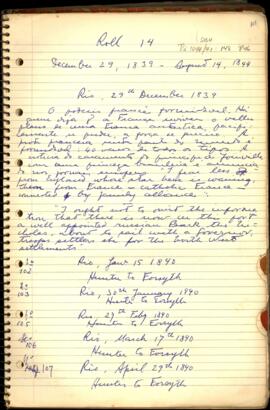 Roll 14
December 29, 1839 - August 14, 1844
Rio, 29th December 1839
O poderio francês formidável. Há
quem diga q a França reviver o velho
plano de uma França antártica, pacifi-
camente se puder, a força se preciso. A
frota francesa nesta parte do mundo é
formidável 40 navios de todos os tipos. A
notícia do casamento do príncipe de Joinville
com uma princesa brasileira e aumento
de sua forças sempre. I fear less
from England whose star here is waning,
than from France - catholic France -
connected by family alliance.
I ought not to omit the informa-
tion that there is now in this port
a well appointed Russian Bark, the Ni-
cholas, about to sail with a Governor,
troops settlers etc for the North West
settlements.
102
Rio, Jan 15 1840
Hunter to Forsyth
103
Rio, 30th January 1840
Hunter to Forsyth
105
Rio, 29 Feby 1840
Hunter to Forsyth
106
Rio, March 17th 1840
Hunter to Forsyth
107
Rio, April 29th 1840
Hunter to Forsyth